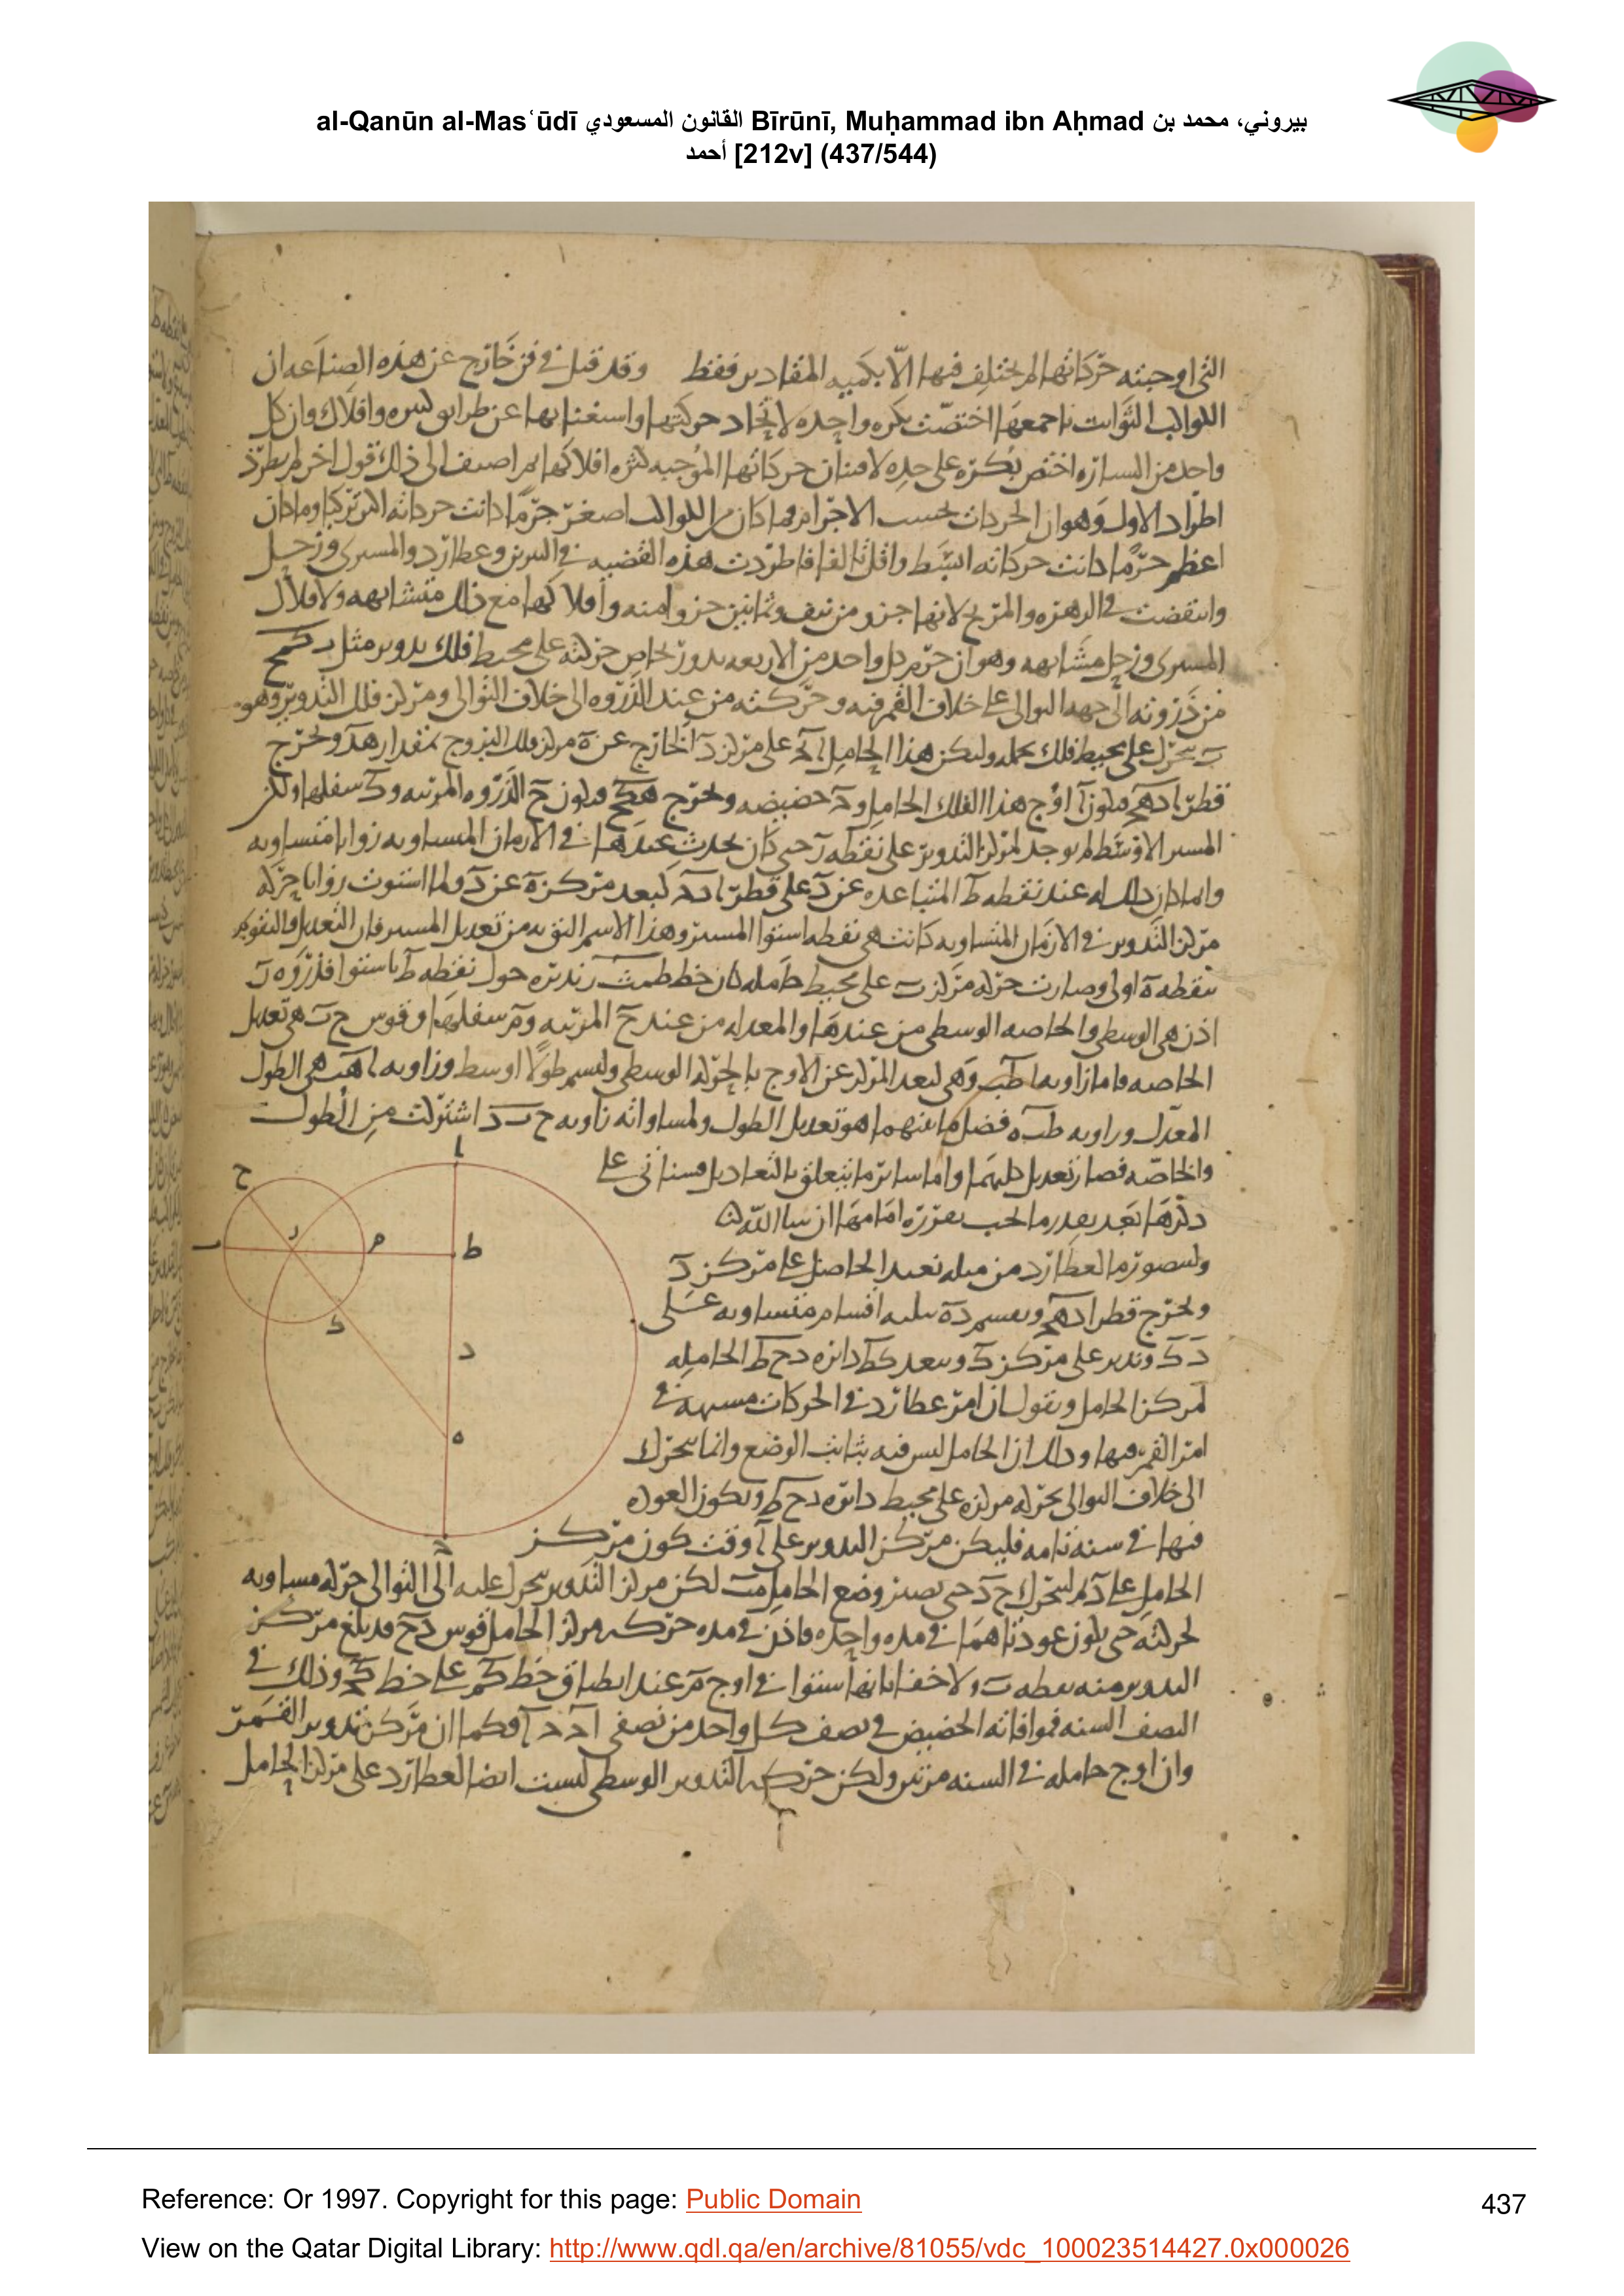 al-Qanūn al-Masʿūdī القانون المسعودي Bīrūnī, Muḥammad ibn Aḥmad بيروني، محمد بن
أحمد [212v] (437/544)
التى اوجبته حركاتها لم يختلف فيها الا بكميه المقادير فقط وقد قيل فى فن خارج عن هذه الصناعه ان
الكواكب الثوابت باجمعها اختصت بكره واحده لاتحاد حركتها واستغنايها عن وافلاك وان كل
واحد من السياره اختص بكره على حده لافتنان حركاتها الموجبه كثره افلاكها ثم اضيف الى ذلك قول اخر لم يطرد
اطراد الاول وهو ان الحركات بحسب الاجرام فما كان من الكواكب اصغر جرما كانت حركاته اكثر تركبا وما كان
اعظم جرما كانت حركاته ابسط واقل تالفا فاطردت هذه القضيه فى النيرين وعطارد والمشترى وزحل
وانتقضت فى الزهره والمريخ لانها جزو من نيف وثمانين جزوا منه وافلاكها مع ذلك متشابهه ولافلاك
المشترى وزحل مشابهه وهو ان جرم كل واحد من الاربعه يدور بخاص حركته على محيط فلك تدوير مثل
من ذروته الى جهه التوالى على خلاف القمر فيه وحركته من عند الذروه الى خلاف التوالى ومركز فلك التدوير وهو
ب يتحرك على محيط فلك يحمله وليكن هذا الحامل على مركز د الخارج عن ه مركز فلك البروج بمقدار هد ونخرج
قطر ادهج فيكون ا اوج هذا الفلك الحامل و حضيضه ونخرج فيكون ح الذروه المرتبه وك سفلها ولكن
المسير الاوسط لم يوجد لمركز التدوير على نقطه حتى كان يحدث عندها فى الازمان المتساويه زوايا متساويه
وانما كان ذلك له عند نقطه ط المتباعده عن د على قطر كبعد مركز ه عن د ولما استوت زوايا حركه
مركز التدوير فى الازمان المتساويه كانت هى نقطه استوا المسير وهذا الاسم اليق به من تعديل المسير فان التعديل والتقويم
بنقطه ه اولى وصارت حركه مركز ب على محيط حامله كان خط طمب يديره حول نقطه ط باستوا فذروه ل
اذن هى الوسطى والخاصه الوسطى من عندها والمعدله من عند ح المرتبه وم سفلها وقوس ح هى تعديل
الخاصه فاما زاويه اطب وهى لبعد المركز عن الاوج بالحركه الوسطى وليسم طولا اوسط وزاويه اهب هى الطول
المعدل وزاويه طبه فضل ما بينهما هو تعديل الطول ولمساواته زاويه اشتركت من الطول
والخاصه فصار تعديل كليهما واما سائر ما يتعلق بالتعاديل فسناتى على
ذكرها بعد تقديم ما يجب تقريره امامها ان شا الله
ولنصور ما لعطارد من مثله نعيد الحاصل على مركز د
ونخرج قطر ادهج ونقسم ده بثلثه اقسام متساويه على
وندير على مركز ك وببعد كط دايره دحط الحامله
لمركز الحامل ونقول ان امر عطارد فى الحركات مشبهه فى
امر القمر فيها وذلك ان الحامل ليس فيه بثابت الوضع وانما يتحرك
الى خلاف التوالى بحركه مركزه على محيط دايره دحط وتكون العوده
فيها فى سنه تامه فليكن مركز التدوير على ا وقت كون مركز
الحامل على د ثم ليتحرك حتى يصير وضع الحامل مب لكن مركز التدوير يتحرك عليه الى التوالى حركه مساويه
لحركته حتى يكون عودتاهما فى مده واحده فاذن فى مده حركه مركز الحامل قوس دح قد بلغ مركز
التدوير منه نقطه ب ولا خفا بانها استوا فى اوج م عند انطباق خط على خط وذلك فى
النصف السنه فموافاته الحضيض فى نصف كل واحد من نصفى فكما ان مركز تدوير القمر
وان اوج حامله فى السنه مرتين ولكن حركه التدوير الوسطى ليست ايضا لعطارد على مركز الحامل
ا
ح
ر
م
ط
ك
د
ه
Reference: Or 1997. Copyright for this page: Public Domain
437
View on the Qatar Digital Library: http://www.qdl.qa/en/archive/81055/vdc_100023514427.0x000026